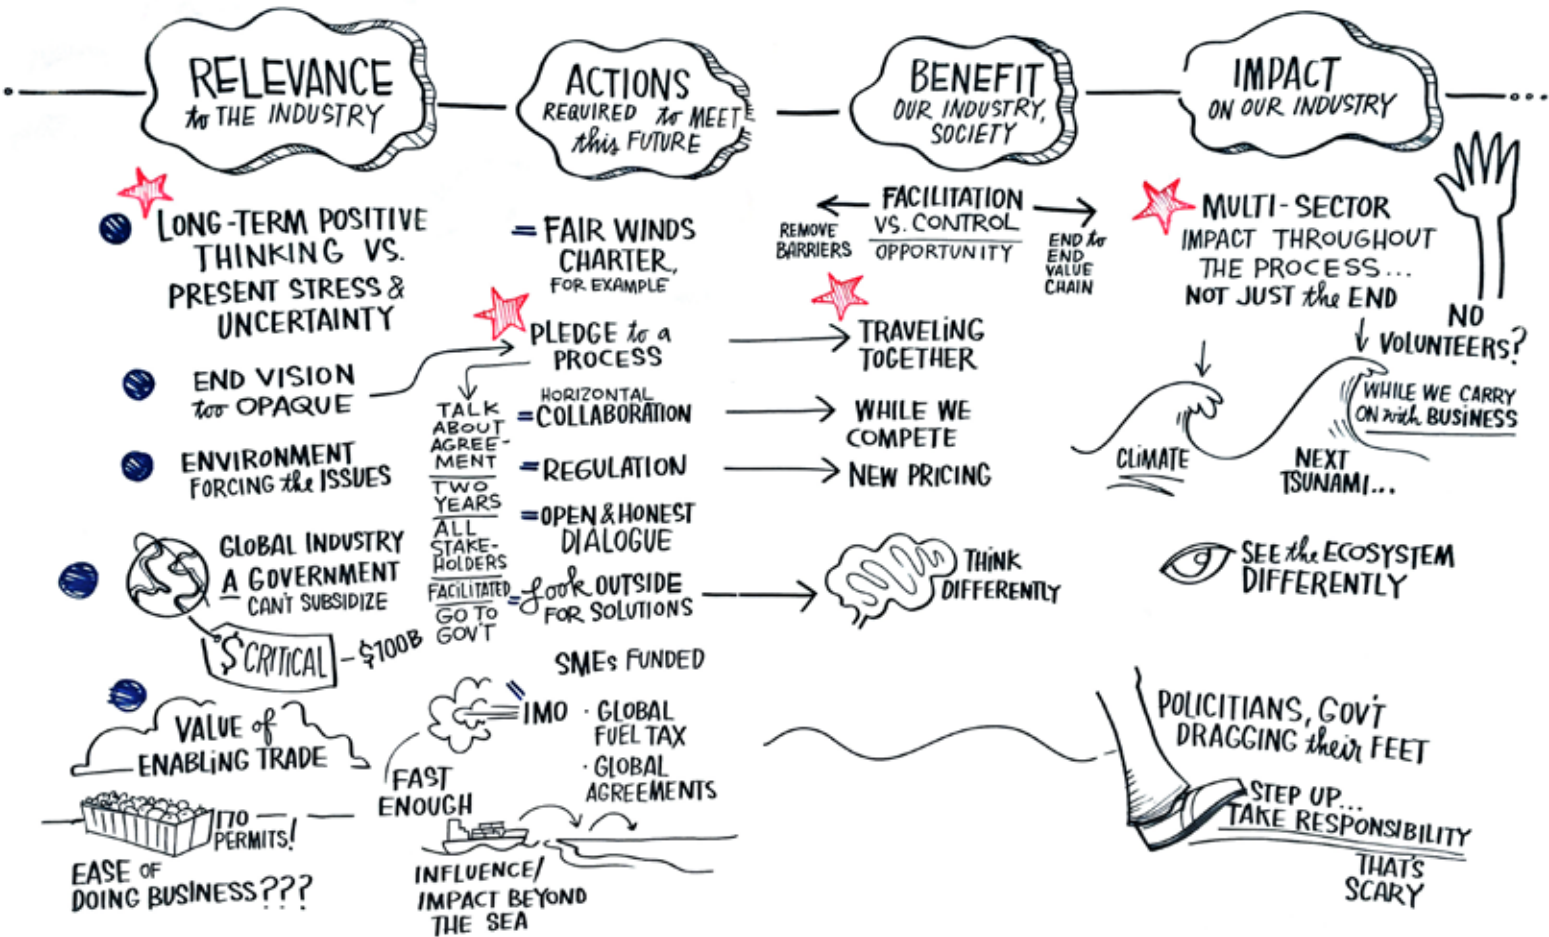 RELEVANCE
to THE INDUSTRY
ACTIONS
REQUIRED to MEET
this FUTURE
BENEFIT
OUR INDUSTRY,
SOCIETY
IMPACT
ON OUR INDUSTRY
LONG-TERM POSITIVE
THINKING VS.
PRESENT STRESS &
UNCERTAINTY
END VISION
too OPAQUE
ENVIRONMENT
FORCING the ISSUES
GLOBAL INDUSTRY
A GOVERNMENT
CAN'T SUBSIDIZE
$ CRITICAL
- $100B
VALUE of
ENABLING TRADE
170
PERMITS!
EASE OF
DOING BUSINESS???
= FAIR WINDS
CHARTER,
FOR EXAMPLE
PLEDGE to a
PROCESS
TALK
ABOUT
AGREE-
MENT
TWO
YEARS
ALL
STAKE-
HOLDERS
FACILITATED
GO TO
GOV'T
HORIZONTAL
= COLLABORATION
= REGULATION
= OPEN & HONEST
DIALOGUE
= Look OUTSIDE
FOR SOLUTIONS
SMEs FUNDED
IMO
· GLOBAL
FUEL TAX
· GLOBAL
AGREEMENTS
FAST
ENOUGH
INFLUENCE/
IMPACT BEYOND
THE SEA
FACILITATION
VS. CONTROL
OPPORTUNITY
REMOVE
BARRIERS
END to
END
VALUE
CHAIN
TRAVELING
TOGETHER
WHILE WE
COMPETE
NEW PRICING
THINK
DIFFERENTLY
MULTI-SECTOR
IMPACT THROUGHOUT
THE PROCESS...
NOT JUST the END
NO
VOLUNTEERS?
WHILE WE CARRY
ON with BUSINESS
CLIMATE
NEXT
TSUNAMI...
SEE the ECOSYSTEM
DIFFERENTLY
POLICITIANS, GOV'T
DRAGGING their FEET
STEP UP...
TAKE RESPONSIBILITY
THAT'S
SCARY